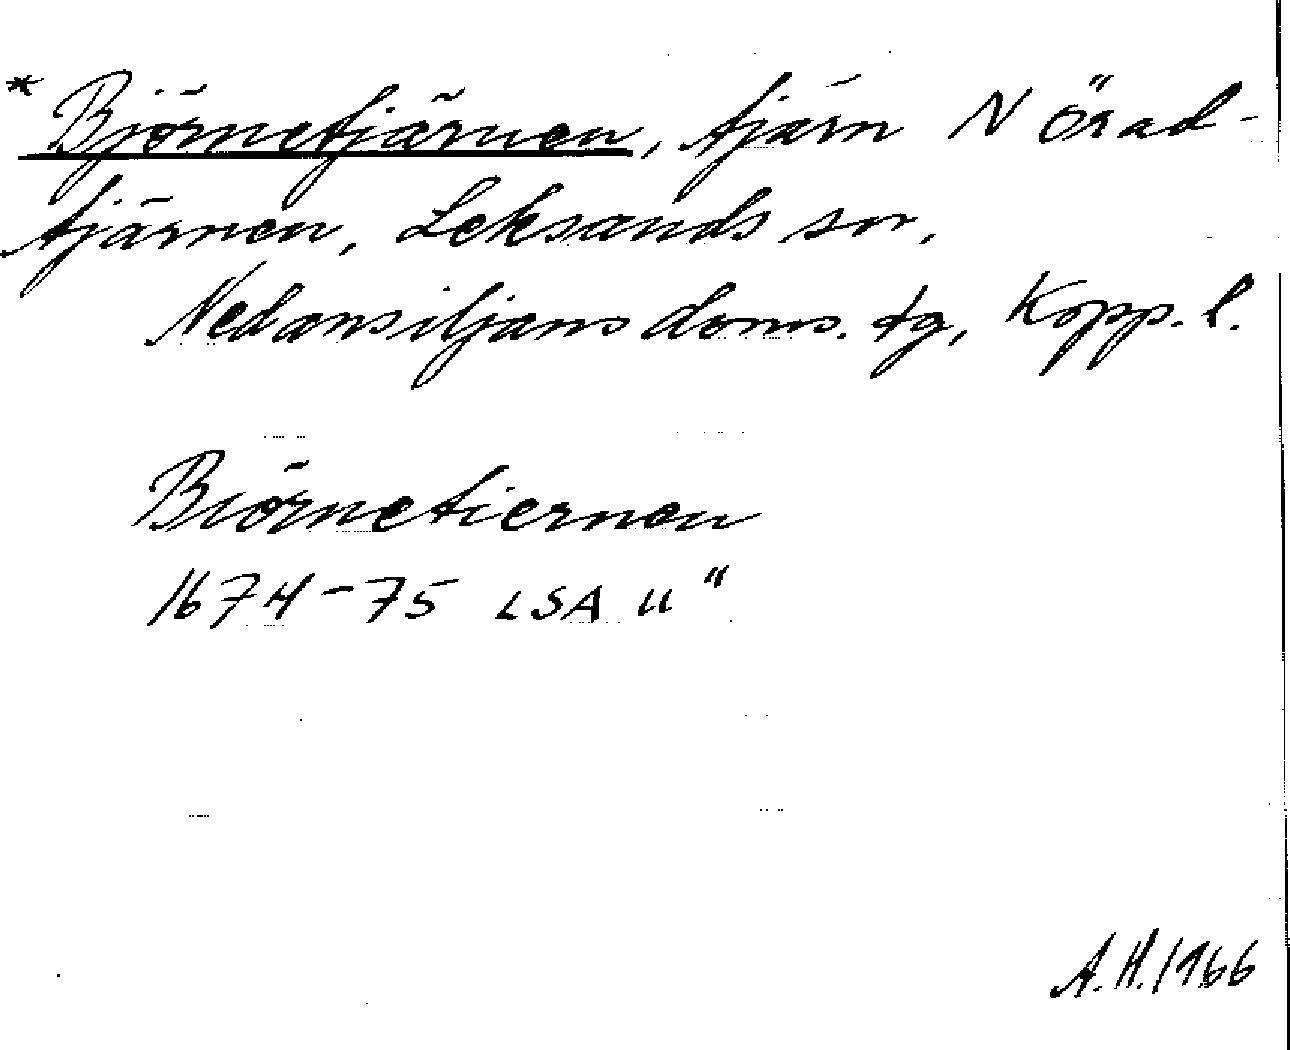 * Björnetjärnen, tjärn N Örad-
tjärnen, Leksands sn,
Nedansiljans doms. tg, Kopp. l.
Biörnetiernen
1674-75 LSA U"
A.H. 1966